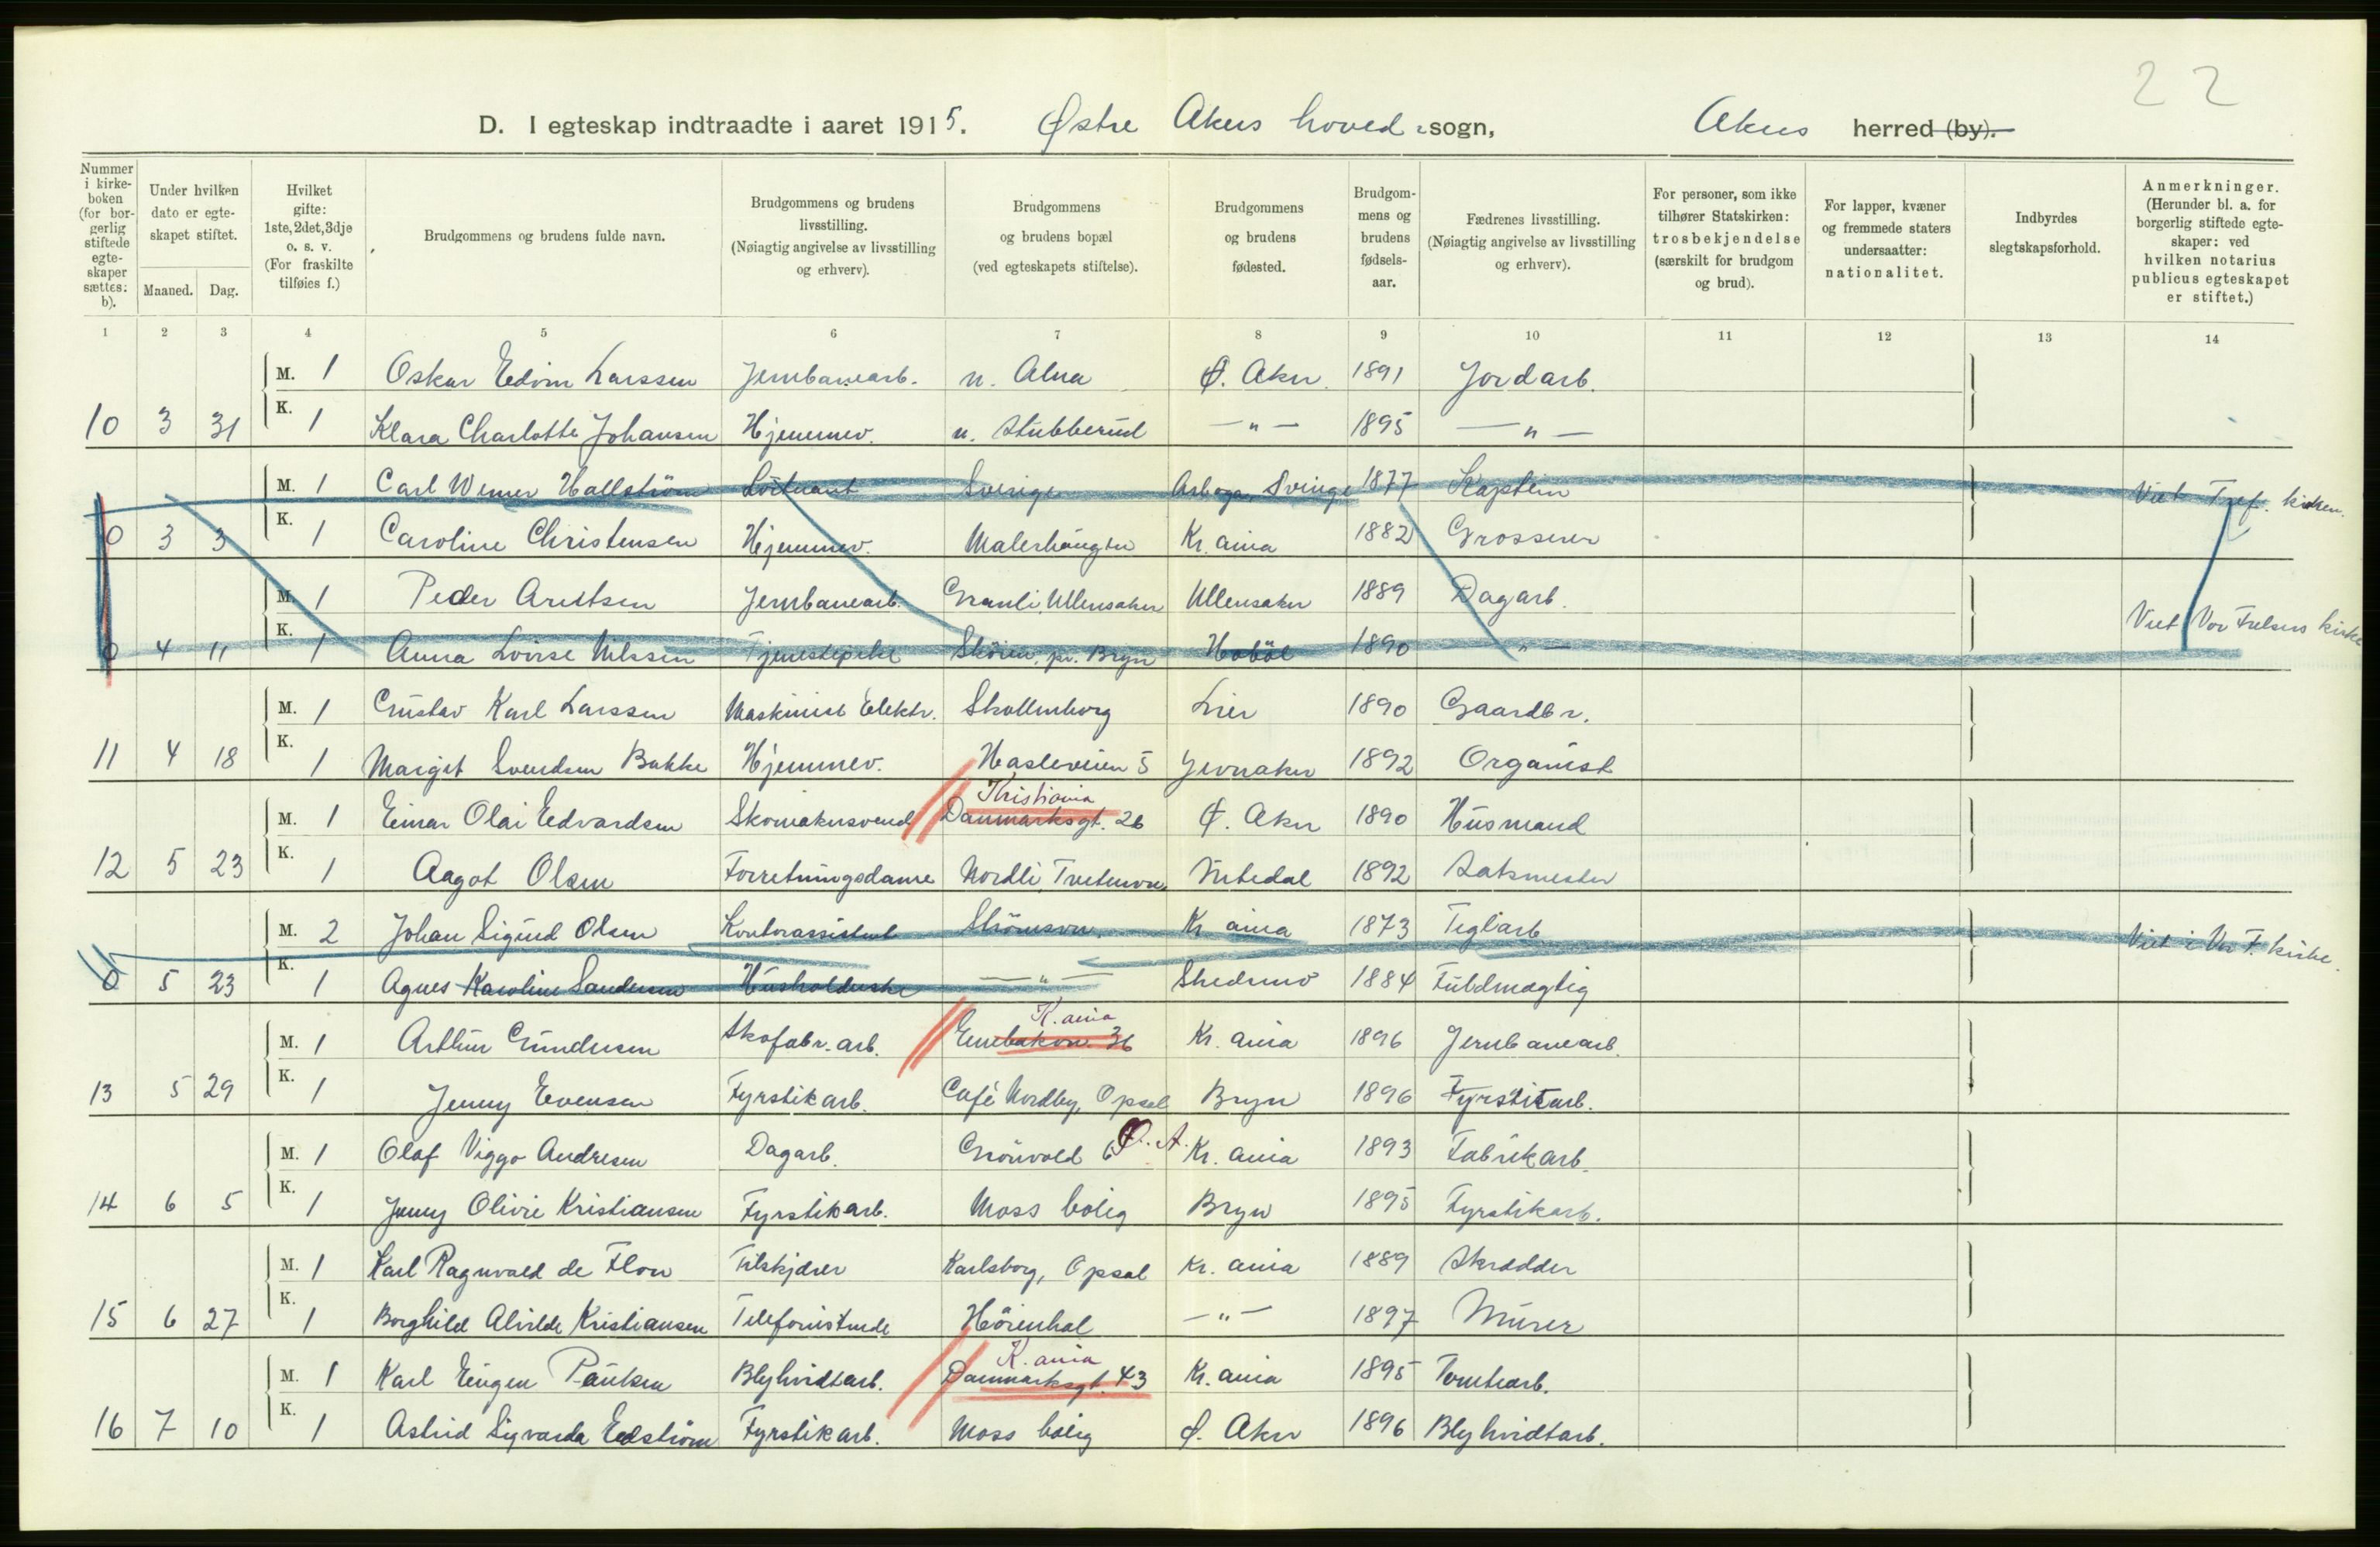 22
D. I egteskap indtraadte i aaret 1915. Østre Akers hoved sogn, Akers herred (by).
Nummer i kirkeboken (for borgerlig stiftede egteskaper sættes: b).
Under hvilken dato er egteskapet stiftet.
Maaned. Dag.
Hvilket gifte: 1ste, 2det, 3dje o. s. v. (For fraskilte tilføies f.)
Brudgommens og brudens fulde navn.
Brudgommens og brudens livsstilling. (Nøiagtig angivelse av livsstilling og erhverv).
Brudgommens og brudens bopæl (ved egteskapets stiftelse).
Brudgommens og brudens fødested.
Brudgommens og brudens fødselsaar.
Fædrenes livsstilling. (Nøiagtig angivelse av livsstilling og erhverv).
For personer, som ikke tilhører Statskirken: trosbekjendelse (særskilt for brudgom og brud).
For lapper, kvæner og fremmede staters undersaatter: nationalitet.
Indbyrdes slegtskapsforhold.
Anmerkninger. (Herunder bl. a. for borgerlig stiftede egteskaper: ved hvilken notarius publicus egteskapet er stiftet.)
1 2 3 4 5 6 7 8 9 10 11 12 13 14
M. 1 Oskar Edvin Larssen Jernbanearb. n. Alna Ø. Aker 1891 Jordarb.
10 3 31 K. 1 Klara Charlotte Johansen Hjemmev. n. Stubberud — " — 1895 — " —
M. 1 Carl Werner Hallström Löitnant Sverige Arboga, Sverige 1877 Kaptein Viet Tref. kirken.
0 3 3 K. 1 Caroline Christensen Hjemmev. Malerhaugen Kr.ania 1882 Grosserer
M. 1 Peder Arntsen Jernbanearb. Granli, Ullensaker Ullensaker 1889 Dagarb.
0 4 11 K. 1 Anna Lovise Nilssen Tjenestepike Sköien, pr. Bryn Haböl 1890 — " — Viet Vor Frelsers kirke
M. 1 Gustav Karl Larssen Maskinist Elektr. Skollenborg Lier 1890 Gaardbr.
11 4 18 K. 1 Margit Svendsen Bakke Hjemmev. Hasleveien 5 Jevnaker 1892 Organist
Kristiania
M. 1 Einar Olai Edvardsen Skomakersvend Danmarksgt. 26 Ø. Aker 1890 Husmand
12 5 23 K. 1 Aagot Olsen Forretningsdame Nordli, Tvetenvn. Nitedal 1892 Saksmester
M. 2 Johan Sigurd Olsen Kontorassistent Strömsvn. Kr.ania 1873 Teglarb. Viet i Vor F. kirke.
0 5 23 K. 1 Agnes Karoline Sandersen Husholderske — " — Skedsmo 1884 Fuldmægtig
K.ania
M. 1 Arthur Gundersen Skofabr. arb. Enebakvn. 36 Kr.ania 1896 Jernbanearb.
13 5 29 K. 1 Jenny Evensen Fyrstikarb. Café Nordby, Opsal Bryn 1896 Fyrstikarb.
M. 1 Olaf Viggo Andresen Dagarb. Grönvold 6 Ø. A. Kr.ania 1893 Fabrikarb.
14 6 5 K. 1 Jenny Olivie Kristiansen Fyrstikarb. Moss bolig Bryn 1895 Fyrstikarb.
M. 1 Karl Ragnvald de Flon Tilskjærer Karlsborg, Opsal Kr.ania 1889 Skrædder
15 6 27 K. 1 Borghild Alvilde Kristiansen Telefonistinde Höienhal — " — 1897 Murer
K.ania
M. 1 Karl Eugen Paulsen Blyhvidtarb. Danmarksgt. 43 Kr.ania 1895 Tomtearb.
16 7 10 K. 1 Astrid Sigvarda Edström Fyrstikarb. Moss bolig Ø. Aker 1896 Blyhvidtarb.